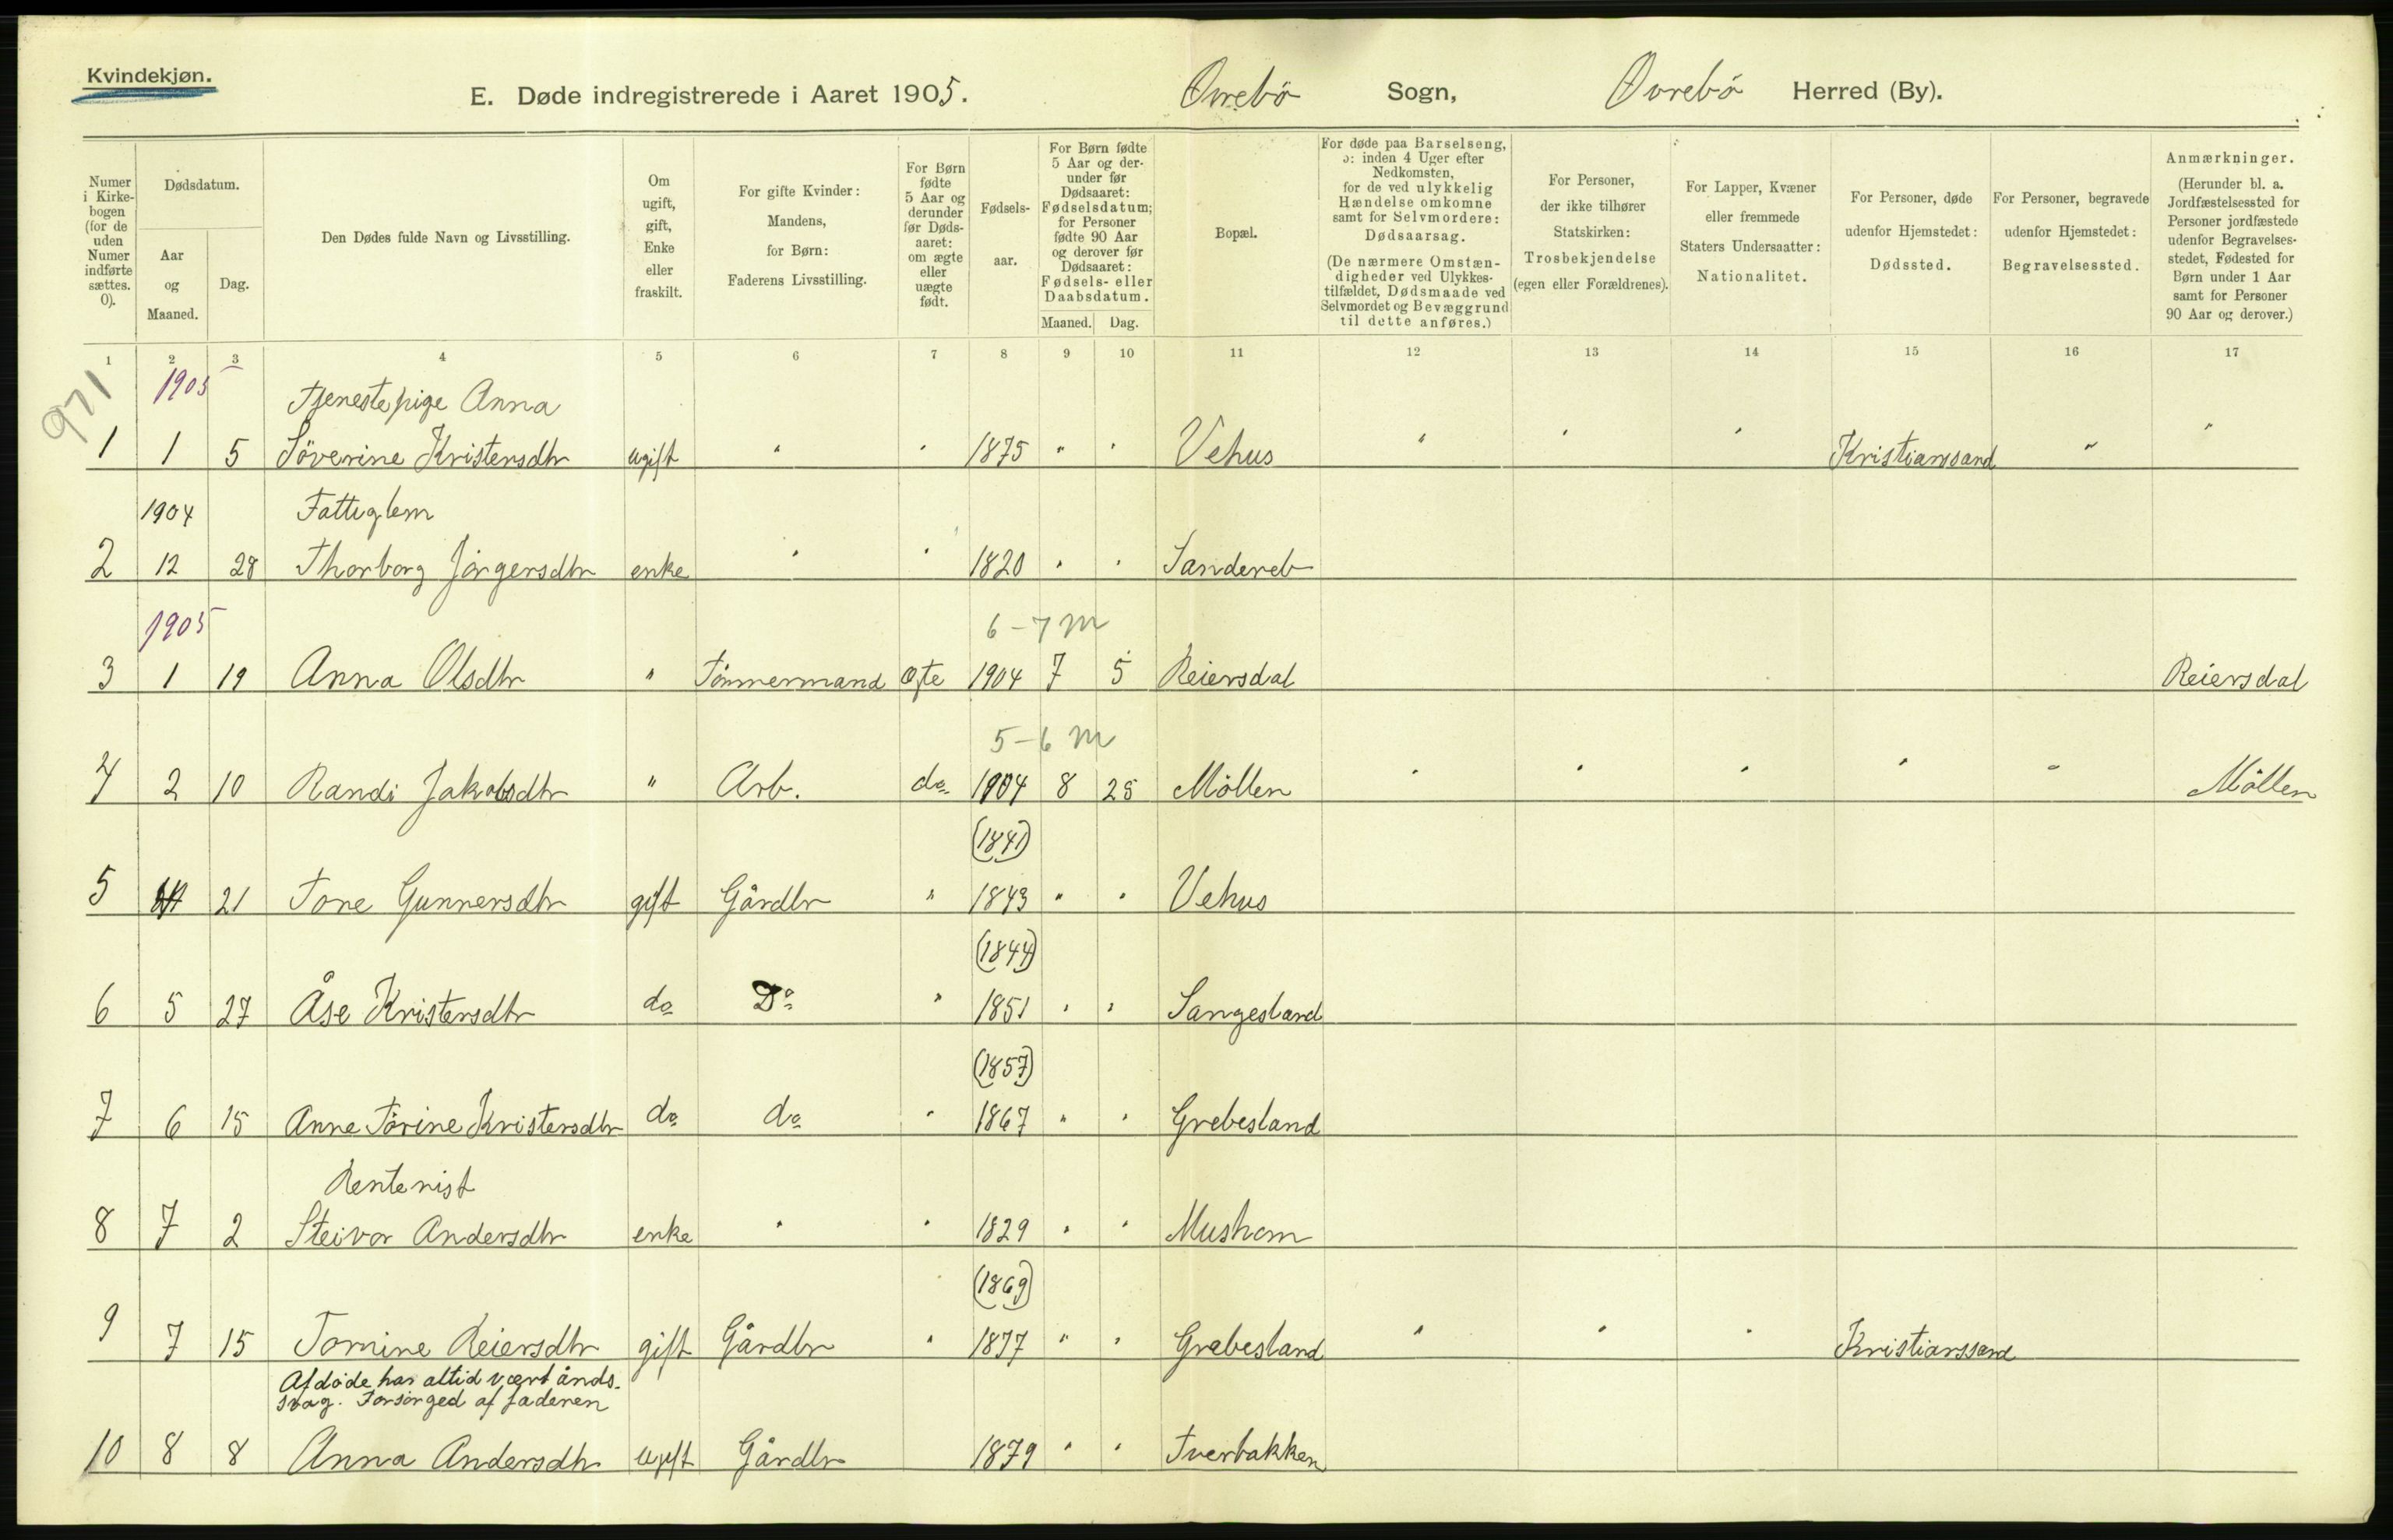 Kvindekjøn.
E. Døde indregistrerede i Aaret 1905. Øvrebö Sogn, Øvrebö Herred (By).
Numer i Kirkebogen (for de uden Numer indførte sættes. 0).
Dødsdatum.
Aar og Maaned.
Dag.
Den Dødes fulde Navn og Livsstilling.
Om ugift, gift, Enke eller fraskilt.
For gifte Kvinder: Mandens, for Børn: Faderens Livsstilling.
For Børn fødte 5 Aar og derunder før Dødsaaret: om ægte eller uægte født.
Fødselsaar.
For Børn fødte 5 Aar og derunder før Dødsaaret: Fødselsdatum; for Personer fødte 90 Aar og derover før Dødsaaret: Fødsels- eller Daabsdatum.
Maaned. Dag.
Bopæl.
For døde paa Barselseng, ɔ: inden 4 Uger efter Nedkomsten, for de ved ulykkelig Hændelse omkomne samt for Selvmordere: Dødsaarsag.
(De nærmere Omstændigheder ved Ulykkestilfældet, Dødsmaade ved Selvmordet og Bevæggrund til dette anføres.)
For Personer, der ikke tilhører Statskirken: Trosbekjendelse (egen eller Forældrenes).
For Lapper, Kvæner eller fremmede Staters Undersaatter: Nationalitet.
For Personer, døde udenfor Hjemstedet: Dødssted.
For Personer, begravede udenfor Hjemstedet: Begravelsessted.
Anmærkninger.
(Herunder bl. a. Jordfæstelsessted for Personer jordfæstede udenfor Begravelsesstedet, Fødested for Børn under 1 Aar samt for Personer 90 Aar og derover.)
1 2 3 4 5 6 7 8 9 10 11 12 13 14 15 16 17
971
1905 Tjenestepige Anna
1 1 5 Söverine Kristensdtr ugift " " 1875 " " Vehus " " " Kristianssand " "
1904 Fattiglem
2 12 28 Thorborg Jörgensdtr enke " " 1820 " "
1905 6-7 m
3 1 19 Anna Olsdtr " Tömmermand Ægte 1904 7 5 Reiersdal Reiersdal
5-6 m
4 2 10 Randi Jakobsdtr " Arb. do 1904 8 25 Möllen " " " " " Möllen
(1841)
5 21 Tone Gunnersdtr gift Gårdbr " 1843 " " Vehus
(1844)
6 5 27 Åse Kristensdtr do Do " 1851 " " Sangesland
(1857)
7 6 15 Anne Törine Kristensdtr do do " 1867 " " Grebesland
Rentenist
8 7 2 Steivor Andersdtr enke " " 1829 " " Mushom
(1869)
9 7 15 Tomine Reiersdtr gift Gårdbr " 1877 " " Grebesland " " " Kristianssand
Afdöde har altid vært ånds-
svag. Forsörged af faderen
10 8 8 Anna Andersdtr ugift Gårdbr 1879 " " Tverbakken